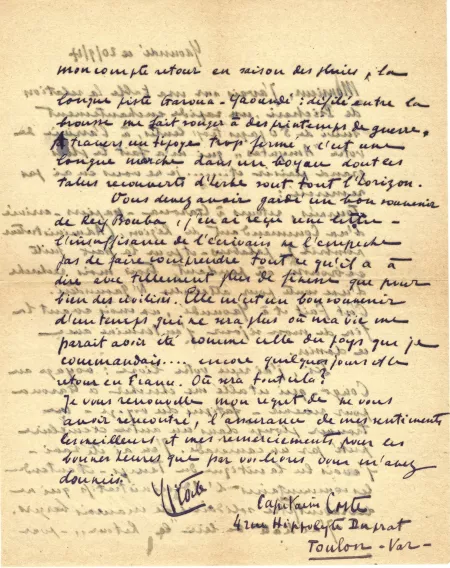 mon compte retour en saison des pluies, la
longue piste Garoua - Yaoundi : défilé entre la
brousse me fait songer à des printemps de guerre.
A travers un tipoye trop fermé, c'est une
longue marche dans un boyau dont les
talus recouverts d'herbe sont tout l'horizon.
Vous devez avoir gardé un bon souvenir
de Rey Bouba, j'en ai reçu une lettre -
l'insuffisance de l'écrivain ne l'empêche
pas de faire comprendre tout ce qu'il a à
dire avec tellement plus de finesse que pour
bien des civilisés. Elle m'est un bon souvenir
d'un temps qui ne sera plus où ma vie me
parait avoir été comme celle du pays que je
commandais.... encore quelques jours et le
retour en France. Où sera tout cela?
Je vous renouvelle mon regret de ne vous
avoir rencontré, l'assurance de mes sentiments
les meilleurs et mes remerciements pour les
bonnes heures que par vos livres, vous m'avez
données.
Capitaine Coste
4 rue Hippolyte Duprat
Toulon - Var -